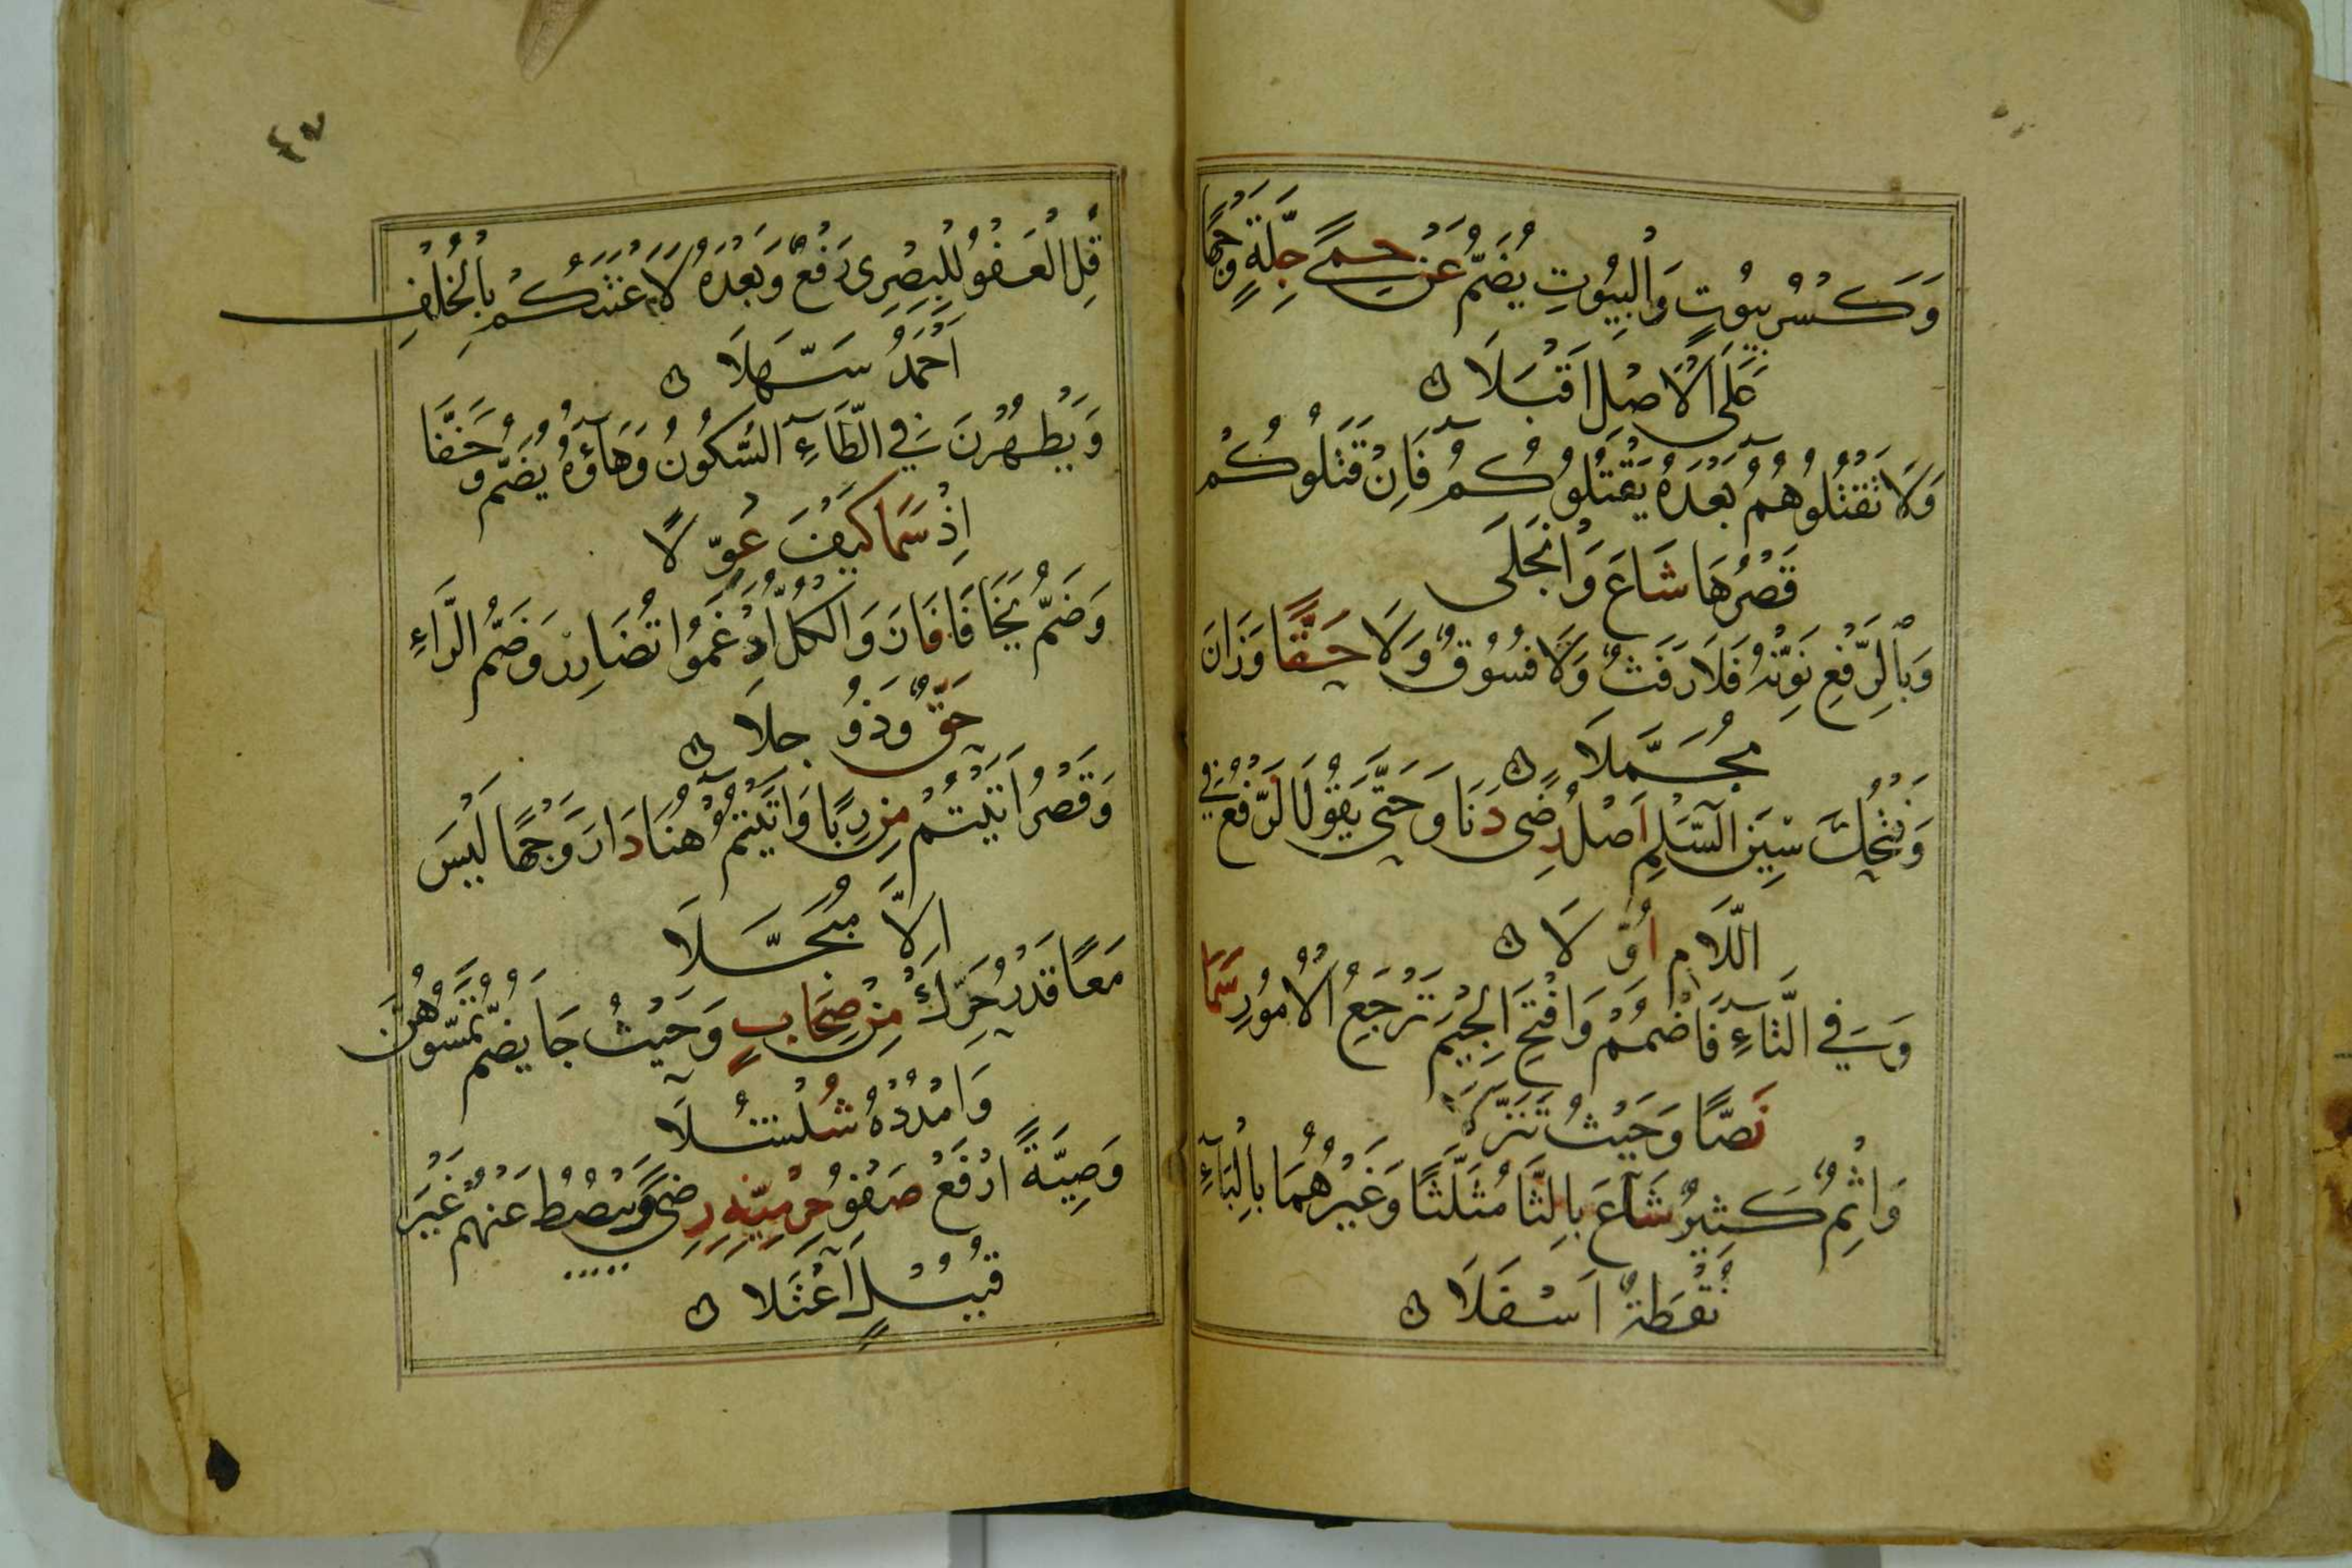 وَكَسْرُ بِيُوتٍ وَالْبِيُوتِ يُضَمُّ عَنْ حِمَى جِلَّةٍ وَجْهًا
عَلَى الْاَصْلِ اَقْبَلَا
وَلَا تَقْتُلُوهُمْ بَعْدَهُ يَقْتُلُوكُمُ فَاِنْ قَتَلُوكُمْ
قَصْرُهَا شَاعَ وَانْجَلَى
وَبِالرَّفْعِ نَوِّنْهُ فَلَا رَفَثٌ وَلَا فُسُوقٌ وَلَا حَقًّا وَزَانَ
مُجَمَّلَا
وَفَتْحُكَ سِينَ السِّلْمِ اَصْلُ رِضًى دَنَا وَحَتَّى يَقُولَ الرَّفْعُ فِي
اللَّامِ اُوِّلَا
وَفِي التَّاءِ فَاضْمُمْ وَافْتَحِ الْجِيمَ تَرْجَعُ الْاُمُورُ سَمَا
نَصًّا وَحَيْثُ تَنَزَّلَا
وَاِثْمٌ كَثِيرٌ شَاعَ بِالثَّا مُثَلَّثًا وَغَيْرُهُمَا بِالْبَاءِ
نُقْطَةٌ اَسْفَلَا
٤٧
قُلِ الْعَفْوُ لِلْبَصْرِى رَفْعٌ وَبَعْدَهُ لَاَعْنَتَكُمْ بِالْخُلْفِ
اَحْمَدُ سَهَّلَا
وَيَطْهُرْنَ فِي الطَّاءِ السُّكُونُ وَهَاؤُهُ يُضَمُّ وَخَفَّفَا
اِذْ سَمَا كَيْفَ عُوِّلَا
وَضَمُّ يَخَافَا فَازَ وَالْكُلُّ اَدْغَمُوا تُضَارِرْ وَضَمَّ الرَّاءِ
حَقٌّ وَذُو جَلَا
وَقَصْرُ اَتَيْتُمْ مِنْ رِبًا وَاَتَيْتُمُ هُنَا دَارَ وَجْهًا لَيْسَ
اِلَّا مُبَجَّلَا
مَعًا قَدْرُ حَرِّكْ مِنْ صِحَابٍ وَحَيْثُ جَا يُضَمُّ تَمَسُّوهُنَّ
وَامْدُدْهُ شُلْشُلَا
وَصِيَّةً ارْفَعْ صَفْوُ حِرْمِيِّهِ رِضًى وَيَبْصُطُ عَنْهُمْ غَيْرَ
قُنْبُلٍ اَعْتَلَا